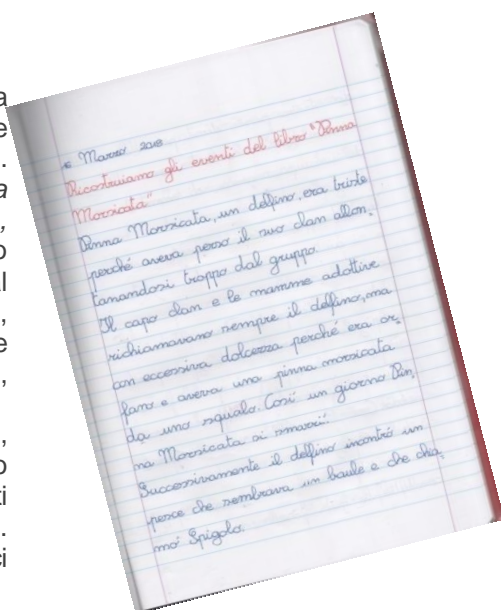 a
e
.
a
,
o
al
,
e
,
,
o
ti
.
ci
6 Marzo 2018
Ricostruiamo gli eventi del libro "Pinna
Morsicata"
Pinna Morsicata, un delfino, era triste
perché aveva perso il suo clan allon=
tanandosi troppo dal gruppo
Il capo clan e le mamme adottive
richiamavano sempre il delfino, ma
con eccessiva dolcezza perché era or=
fano e aveva una pinna morsicata
da uno squalo. Così un giorno Pin=
na Morsicata si smarrì.
Successivamente il delfino incontrò un
pesce che sembrava un baule e che chia=
mò Spigolo.